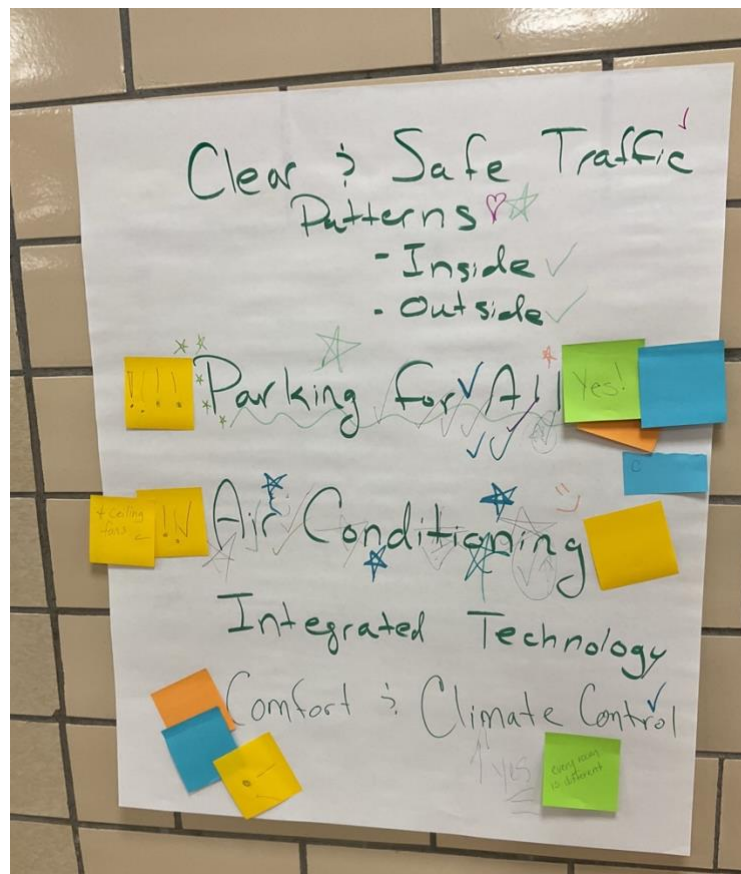 Clear & Safe Traffic
Patterns
- Inside
- Outside
!!!!
Parking for All
Yes!
+ Ceiling
fans
!!
Air Conditioning
Integrated Technology
Comfort & Climate Control
Yes
every room
is different